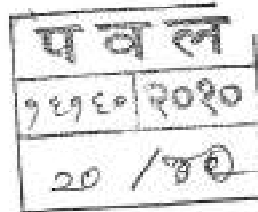 प व ल
१६१६० २०१०
२० /७०